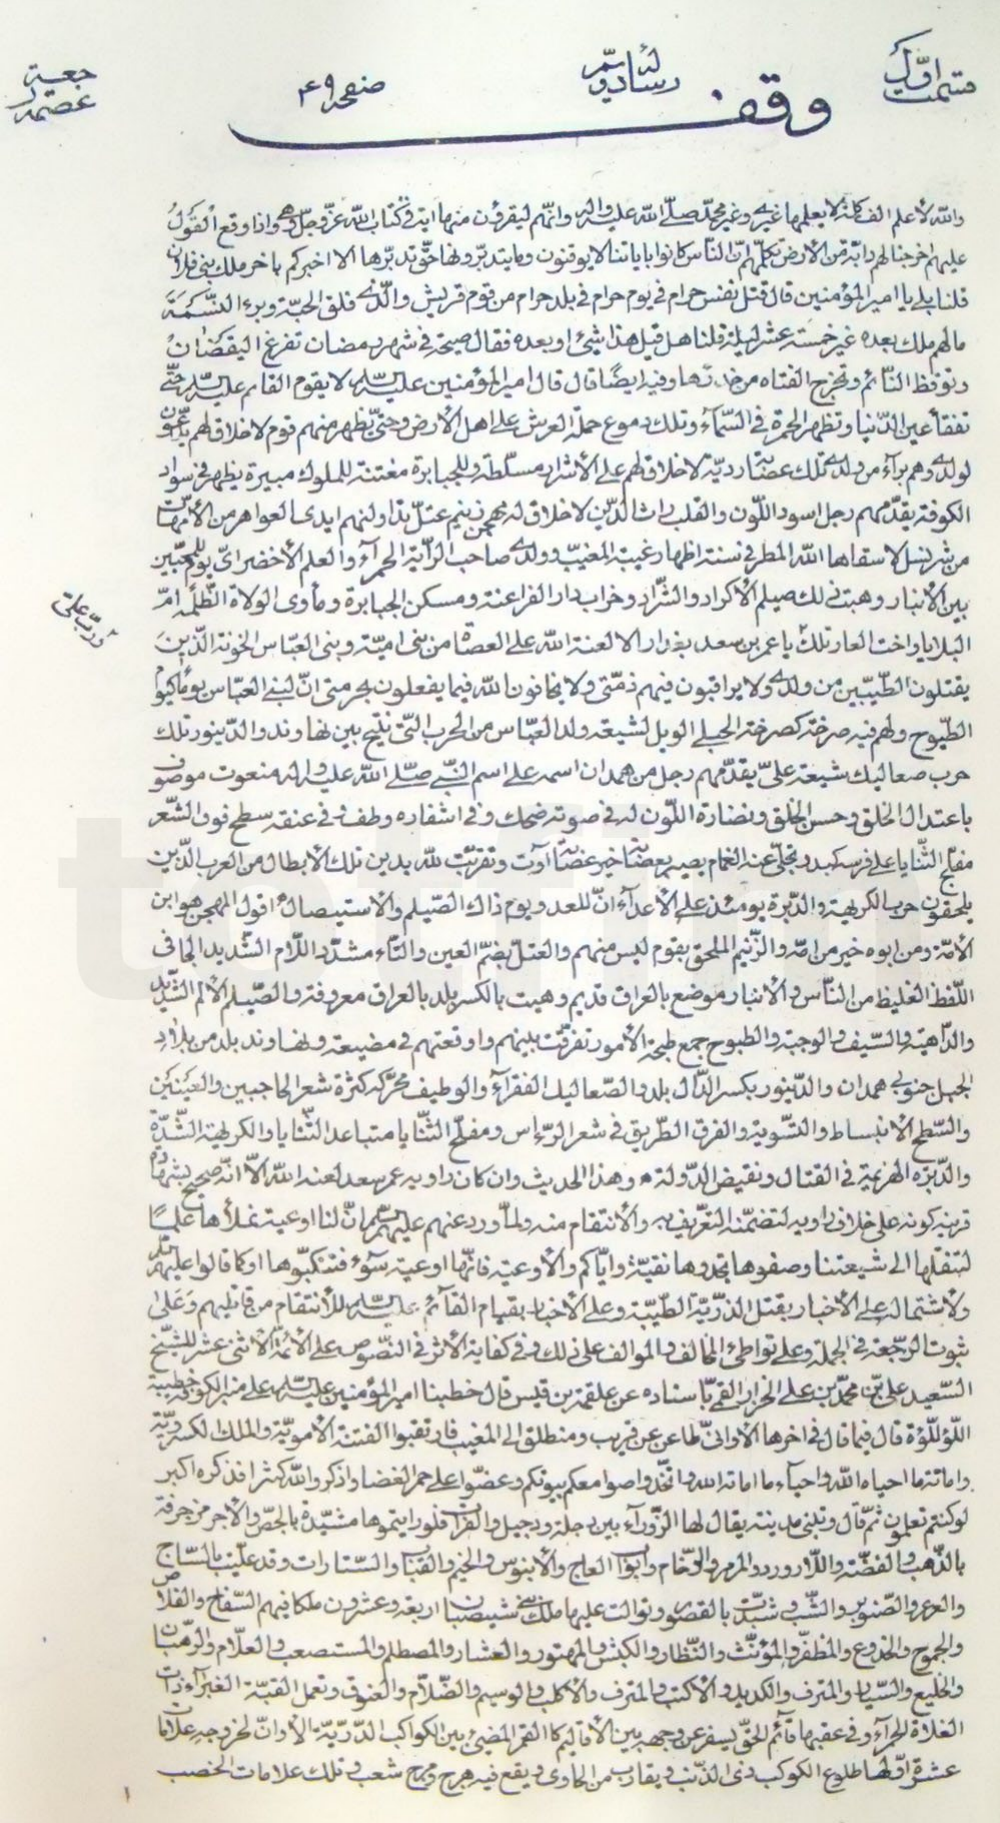 قسمت اوّل
رساله دویّم
صفحه ۴۹
وقف
والله لأعلم الف كلمة لا يعلمها غيرى وغير محمّد صلّى الله عليه واله وانّهم ليقرؤن منها اية فى كتاب الله عزّ وجلّ وهى واذا وقع القول
عليهم اخرجنا لهم دابّة من الأرض تكلّمهم انّ النّاس كانوا باياتنا لا يوقنون وما يتدبّرونها حقّ تدبّرها الا اخبركم باخر ملك بنى فلان
قلنا بلى يا امير المؤمنين قال قتل نفس حرام فى يوم حرام فى بلد حرام من قوم قريش والّذى فلق الحبّة وبرء النّسمة
مالهم ملك بعده غير خمسة عشر ليلة قلنا هل قبل هذا شىء او بعده فقال صيحة فى شهر رمضان تفزع اليقضان
وتوقظ النّائم وتخرج الفتاه من خدرها وفيه ايضًا قال قال امير المؤمنين عليه السّلم لا يقوم القائم عليه السّلم حتّى
تفقأ عين الدّنيا وتظهر الحمرة فى السّمآء وتلك دموع حملة العرش على اهل الأرض وحتى يظهر منهم قوم لا خلاق لهم يدعون
لولدى وهم برآء من ولدى تلك عصابة رديّة لا خلاق لهم على الأشرار مسلّطة وللجبابرة مفتنة للملوك مبيرة يظهر فى سواد
الكوفة يقدّمهم رجل اسود اللّون والقلب راث الدّين لا خلاق له مهجّن زنيم عتلّ تداولتهم ايدى العواهر من الأمّهات
من شرّ نسل لا سقاها الله المطر فى سنة اظهار غيبة المغيّب من ولدى صاحب الرّاية الحمرآء والعلم الأخضر اىّ يوم للمخيّبين
بين الأنبار وهيت ذلك صيلم الأكراد والشّراد وخراب دار الفراعنة ومسكن الجبابرة ومأوى الولاة الظّلمة وامّ
البلايا واخت العار تلك يا عمر بن سعد بغداد الا لعنة الله على العصاة من بنى اميّة وبنى العبّاس الخونة الّذين
وربّ على
يقتلون الطّيّبين من ولدى ولا يراقبون فيهم ذمّتى ولا يخافون الله فيما يفعلون بحرمتى انّ لبنى العبّاس يومًا كيوم
الطّبوح ولهم فيه صرخة كصرخة الحبلى الويل لشيعة ولد العبّاس من الحرب الّتى تنتج بين نهاوند والدّينور تلك
حرب صعاليك شيعة علىّ يقدّمهم رجل من همدان اسمه على اسم النّبى صلّى الله عليه واله منعوت موصوف
باعتدال الخلق وحسن الخلق ونضارة اللّون له فى صوته ضحك وفى اشفاره وطف فى عنقه سطح فرق الشّعر
مفلّج الثّنايا على فرسه كبدر تجلّى عنه الغمام يصير بعصابة خير عصابة آوت وتقرّبت لله بدين تلك الأبطال من العرب الّذين
يلحقون حرب الكريهة والدّبرة يومئذ على الأعدآء انّ للعدوّ يوم ذاك الصّيلم والأستيصال اقول المهجّن هو ابن
الأمة ومن ابوه خير من امّه والزّنيم الملحق بقوم ليس منهم والعتلّ بضمّ العين والتّاء مشدّد اللّام الشّديد الجافى
اللّفظ الغليظ من النّاس والأنبار موضع بالعراق قديم وهيت بالكسر بلد بالعراق معروفة والصّيلم الألم الشّديد
والدّاهية والسّيف والوجبة والطبوح جمع طبحة الأمور تفرّقت بينهم واوقعتهم فى مضيعة ونهاوند بلد من بلاد
الجبل جنوبى همدان والدّينور بكسر الدّال بلد والصّعاليك الفقرآء والوطف محرّكه كثرة شعر الحاجبين والعينين
والسّطح الأنبساط والتّسوية والفرق الطّريق فى شعر الرّأس ومفلّج الثّنايا متباعد الثّنايا والكريهة الشّدّة
والدّبره الهزيمة فى القتال ونقيض الدّولة وهذا الحديث وان كان راويه عمر سعد لعنه الله الاّ انّه صحيح بشهادة
قرينة كونه على خلاف راويه لتضمّنه التعريف به والأنتقام منه ولما ورد عنهم عليهم السّلم انّ لنا اوعية نملأها علمًا
لتنقلها الى شيعتنا وصفوها تجدوها نقيّة وايّاكم والأوعية فانّها اوعية سوء فتنكّبوها او كما قالوا عليهم السّلم
ولأشتماله على الأخبار بقتل الذّرّيّة الطّيّبة وعلى الأخبار بقيام القائم عليه السّلم للأنتقام من قاتليهم وعلى
ثبوت الرّجعة فى الجملة وعلى تواطئ المخالف والموالف على ذلك وفى كفاية الأثر فى النّصوص على الأئمّة الأثنى عشر للشّيخ
السّعيد علىّ بن محمّد بن على الخزاز القمى باسناده عن علقمة بن قيس قال خطبنا امير المؤمنين عليه السّلم على منبر الكوفة خطبة
اللّؤلؤة قال فيما قال فى اخرها الا وانّى ظاعن عن قريب ومنطلق الى المغيب فارتقبوا الفتنة الأمويّة والملك الكسرويّة
واماتة ما احياه الله واحيآء ما اماته الله واتّخذوا صوامعكم بيوتكم وعضّوا على جمر الغضا واذكروا الله كثيرا فذكره اكبر
لو كنتم تعلمون ثمّ قال وتبنى مدينة يقال لها الزّورآء بين دجلة ودجيل والفرات فلو رايتموها مشيّدة بالجصّ والأجر مزخرفة
بالذّهب والفضّة واللّازورد والمرمر والرّخام وابواب العاج والأبنوس والخيم والقباب والسّتارات وقد عليّت بالسّاج
والعرعر والصّنوبر والشّب وشيّدت بالقصور وتوالت عليها ملك بنى شيصبان اربعة وعشرون ملكا فيهم السّفاح والمقلاص
والجموح والخدوع والمظفّر والمؤنّث والنّظار والكبش والمهتور والعشار والمصطلم والمستصعب والعلّام والرّهبان
والخليع والسّيار والمترف والكديد والأكتب والمترف والأكلب والوسيم والضّلام والعنوق وتعمل القبّة الغبرآء ذات
الفلاة الحمرآء وفى عقبها قائم الحقّ يسفر عن وجهه بين الأقاليم كالقمر المضىء بين الكواكب الدّرّيّة الا وانّ لخروجه علامات
عشرة اوّلها طلوع الكوكب ذى الذّنب ويقارب من الحاوى ويقع فيه هرج ومرج شعب وتلك علامات الخصب